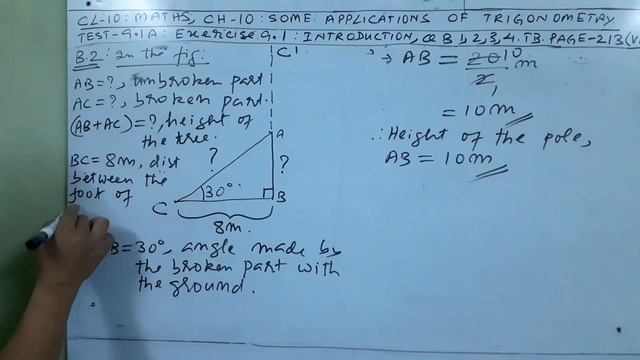 CL-10: MATHS, CH-10: SOME APPLICATIONS OF TRIGONOMETRY
TEST-9.1A: Exercise 9.1: INTRODUCTION, Q B 1, 2, 3, 4. TB. PAGE-213
B.2: In the fig:
AB=?, unbroken part
AC=?, broken part.
(AB+AC)=?, height of
the tree.
BC=8m, dist
between the
foot of
B=30°, angle made by
the broken part with
the ground.
C'
A
?
?
30°
C
B
8m.
→ AB = 20 10 m
2, 1
= 10m
∴ Height of the pole,
AB = 10m